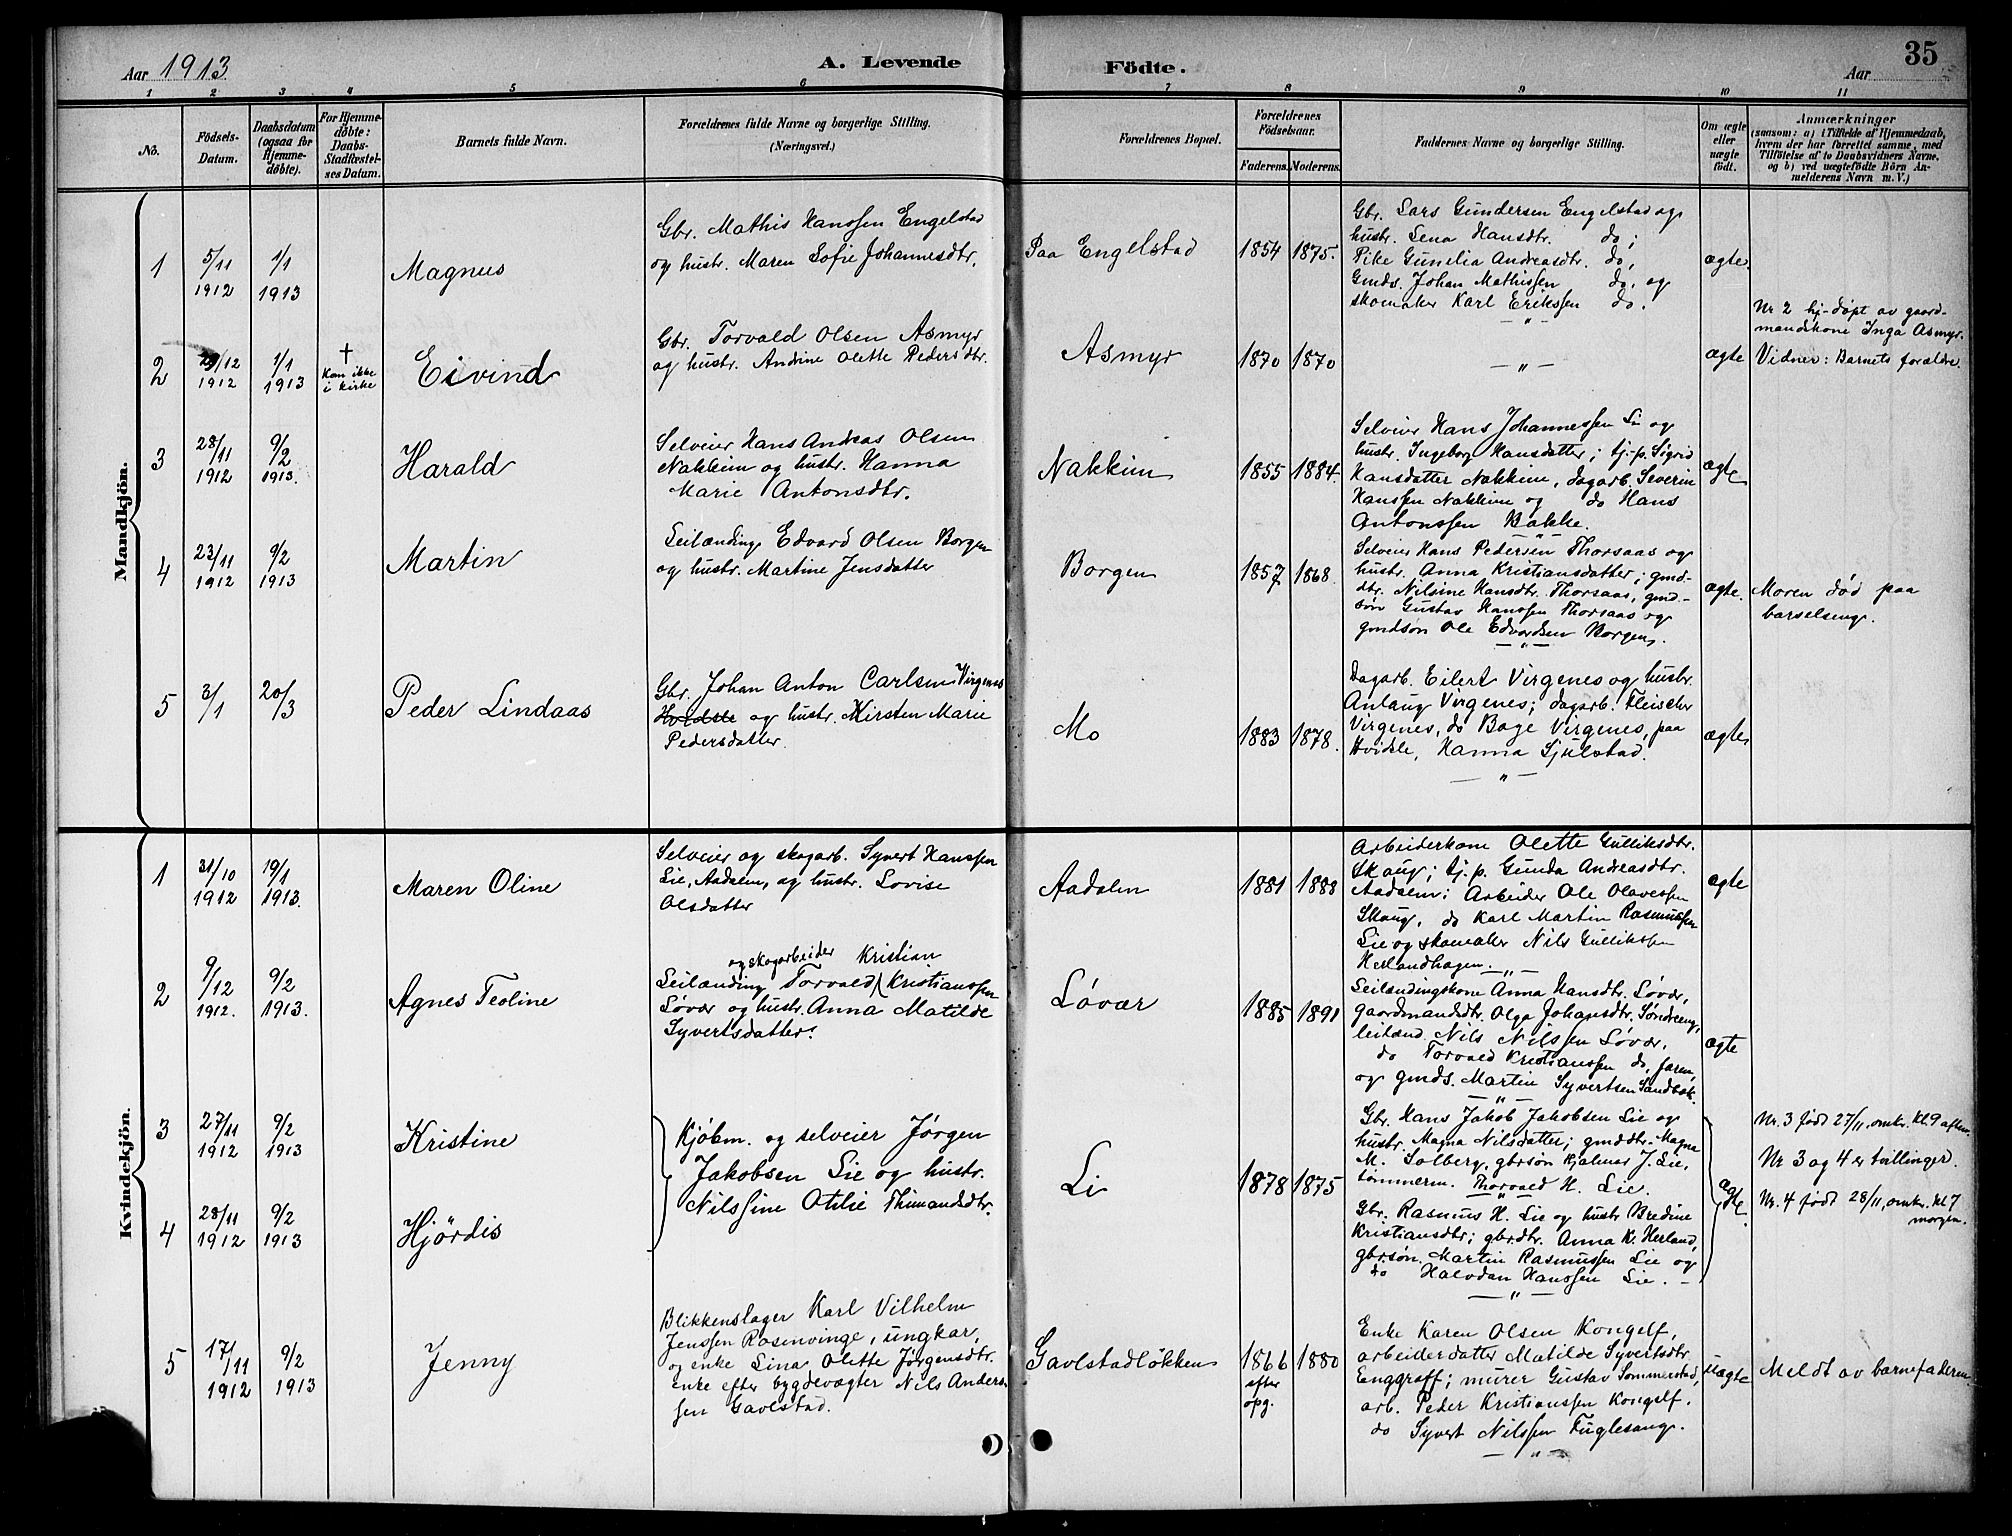 Aar 1913.
A. Levende
Födte.
35
Aar
1 2 3 4 5 6 7 8 9 10 11
No.
Födsels-
Datum.
Daabsdatum
(ogsaa for
Hjemme-
döbte).
For Hjemme-
döbte:
Daabs-
Stadfæstel-
ses Datum.
Barnets fulde Navn.
Forældrenes fulde Navne og borgerlige Stilling.
(Næringsvei.)
Forældrenes Bopæl.
Forældrenes
Födselsaar.
Faderens. Moderens.
Faddernes Navne og borgerlige Stilling.
Om ægte
eller
uægte
födt.
Anmærkninger
(saasom: a) i Tilfælde af Hjemmedaab,
hvem der har forrettet samme, med
Tilföielse af to Daabsvidners Navne.
og b) ved uægtefödte Börn An-
melderens Navn m. V.)
Mandkjön.
1
5/11
1912
1/1
1913
Magnus
Gbr. Mathis Hanssen Engelstad
og hustr. Maren Sofie Johannesdtr.
Paa Engelstad
1854 1875.
Gbr. Lars Gundersen Engelstad og
hustr. Lena Hansdtr. do;
Pike Gunelia Andreasdtr. do,
Gmds. Johan Mathissen do, og
skomaker Karl Erikssen do.
- " -
ægte.
2
29/12
1912
1/1
1913
†
Kom ikke
i kirke
Eivind
Gbr. Torvald Olsen Asmyr
og hustr. Andrine Olette Pedersdtr.
Asmyr
1870 1870
- " -
ægte
Nr 2 hj-døpt av gaard-
mandskone Inga Asmyr.
Vidner: Barnets forældre.
3
28/11
1912
9/2
1913.
Harald
Selveier Hans Andreas Olsen
Nakkim og hustr. Hanna
Marie Antonsdtr.
Nakkim
1855 1884.
Selveier Hans Johannessen Li og
hustr. Ingeborg Hansdatter; tj.-p. Sigrid
Hansdatter Nakkim, dagarb. Severin
Hanssen Nakkim og do Hans
Antonssen Bakke.
- " -
ægte
4
23/11
1912
9/2
1913
Martin
Leilænding Edvard Olsen Borgen
og hustr. Martine Jensdatter
Borgen
1857 1868.
Selveier Hans Pedersen Thorsaas og
hustr. Anna Kristiansdatter; gmd-
dtr. Nilsine Hansdtr. Thorsaas, gmd-
søn Gustav Hanssen Thorsaas og
gmdsøn Ole Edvardsen Borgen.
- " -
ægte.
Moren død paa
barselseng.
5
3/1
20/3
Peder Lindaas
Gbr. Johan Anton Carlsen Virgenes
Hvidsle og hustr. Kirsten Marie
Pedersdatter.
Mo
1883 1878.
Dagarb. Eilert Virgenes og hustr.
Anlaug Virgenes; dagarb. Fleischer
Virgenes, do Boye Virgenes, paa
Hvidsle, Hanna Sjulstad.
- " -
ægte
Kvindekjön.
1
31/10
1912
19/1
1913.
Maren Oline
Selveier og skogarb. Syvert Hanssen
Lie, Aadalen, og hustr. Lovise
Olsdatter
Aadalen
1881 1888
Arbeiderkone Olette Gulliksdtr.
Skaug; tj.p. Gunda Andreasdtr.
Aadalen; Arbeider Ole Olavessen
Skaug, do Karl Martin Rasmussen
Lie og skomaker Nils Gullikssen
Herlandhagen.
- " -
ægte
2
9/12
1912.
9/2
1913.
Agnes Teoline
og skogarbeider Kristian
Leilænding Torvald Kristianssen
Løvar og hustr. Anna Matilde
Syvertsdatter.
Løvar
1885 1891
Leilændingskone Anna Hansdtr. Løvar,
gaardmandsdtr. Olga Johansdtr. Søndreeng,
leilænd. Nils Nilssen Løvar,
do Torvald Kristianssen do, faren,
og gmds. Martin Syvertsen Sandbæk.
- " -
ægte
3
27/11
1912
9/2
1913
Kristine
Kjøbm. og selveier Jørgen
Jakobsen Lie og hustr.
Nilssine Otilie Thimandsdtr.
Li
1878 1875
Gbr. Hans Jakob Jakobsen Lie og
hustr. Magna Nilsdatter; gmddtr. Magna
M. Solberg, gbrsøn Hjalmar J. Lie,
tømmerm. Thorvald H. Lie.
- " -
ægte.
Nr. 3 født 27/11, omkr. kl. 9 aften.
Nr 3 og 4 er tvillinger.
Nr. 4 født 28/11, omkr. kl 7
morgen.
4
28/11
1912
9/2
1913
Hjördis
Gbr. Rasmus H. Lie og hustr Bredine
Kristiansdtr; gbrdtr. Anna K. Herland,
gbrsøn. Martin Rasmussen Lie og
do Halvdan Hanssen Lie. -
- " -
5
17/11
1912
9/2
1913
Jenny
Blikkenslager Karl Vilhelm
Jenssen Rosenvinge, ungkar,
og enke Lina Olette Jørgensdtr.
enke efter bygdevægter Nils Anders-
sen Gavlstad.
Gavlstadløkken
1866 1880
efter
opg.
Enke Karen Olsen Kongelf,
arbeiderdatter Matilde Syvertsdtr
Enggraff; murer Gustav Sommerstad,
arb. Peder Kristianssen Kongelf.
do Syvert Nilssen Fuglesang.
- " -
uægte
Meldt av barnefaderen.